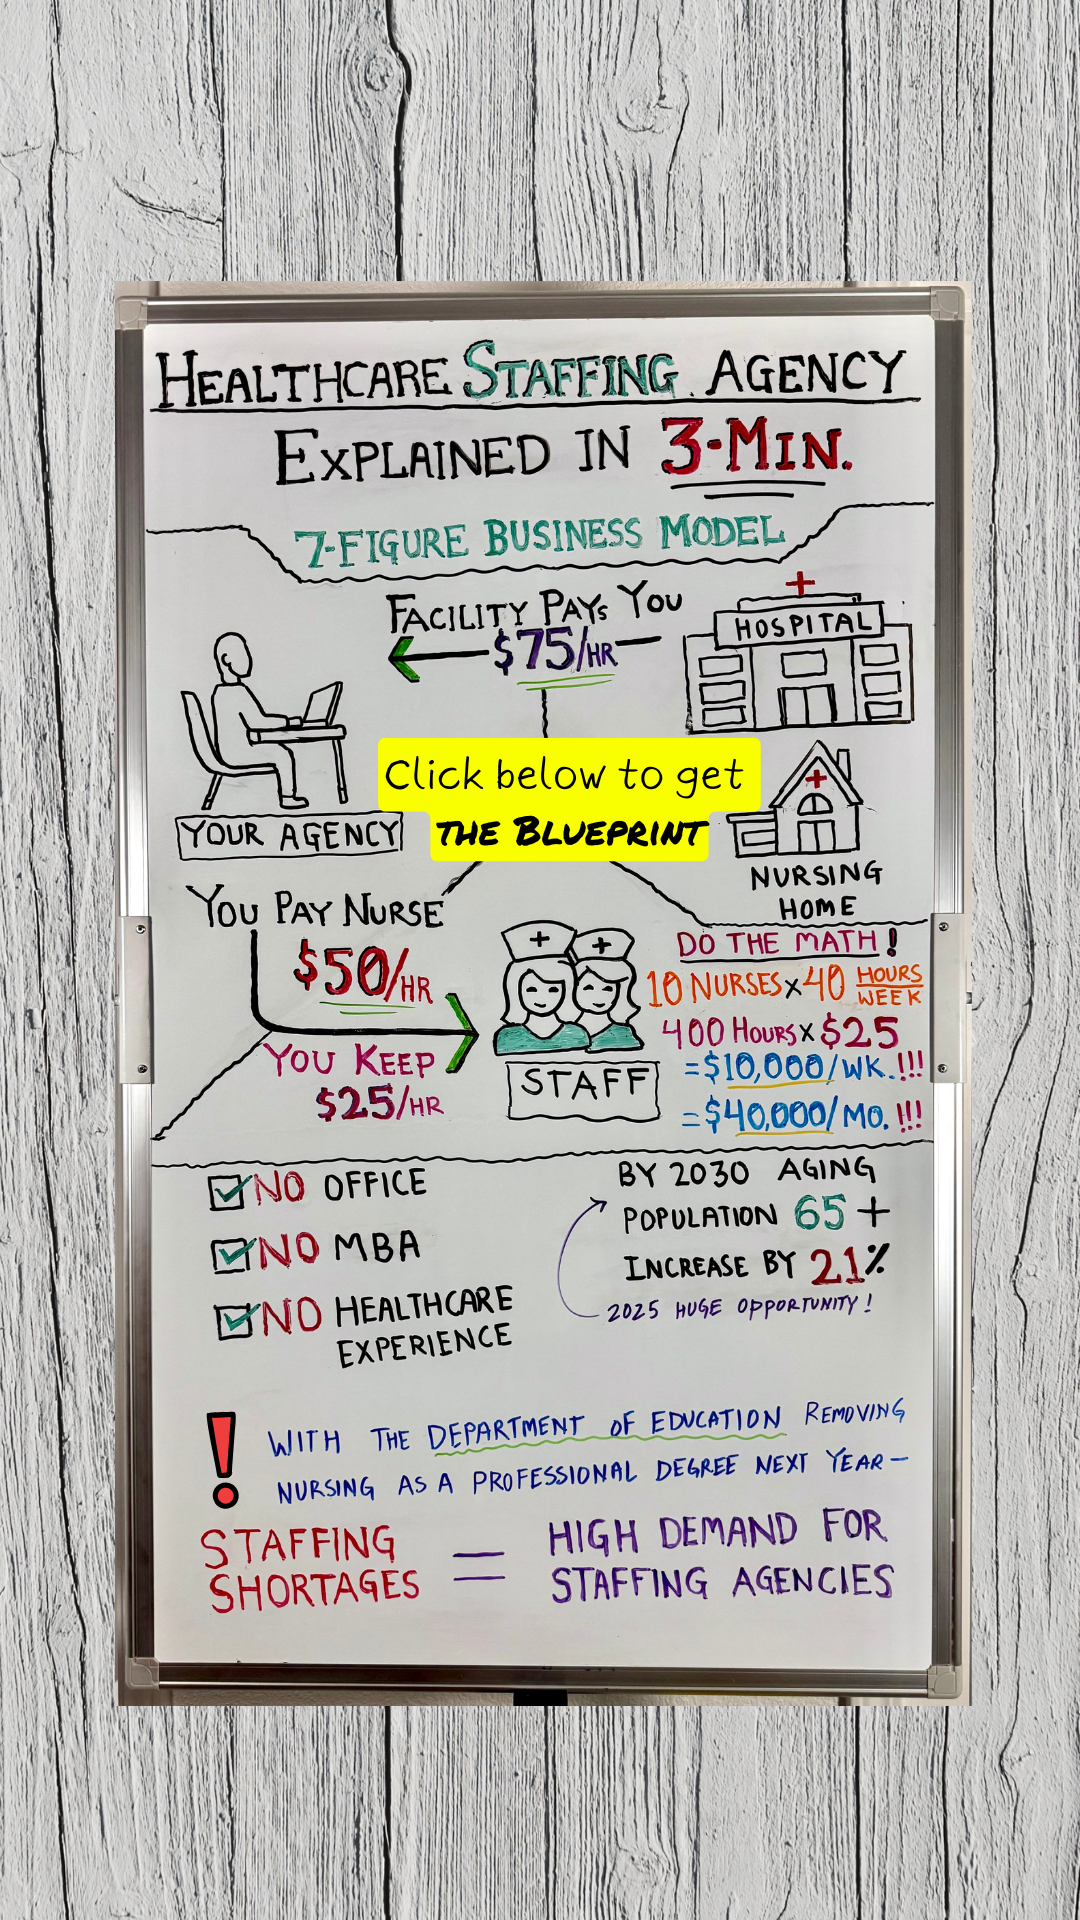 HEALTHCARE STAFFING AGENCY
EXPLAINED IN 3-MIN.
7-FIGURE BUSINESS MODEL
FACILITY PAYS YOU
$75/HR
HOSPITAL
Click below to get
THE BLUEPRINT
YOUR AGENCY
NURSING
HOME
YOU PAY NURSE
$50/HR
YOU KEEP
$25/HR
STAFF
DO THE MATH!
10 NURSES x 40 HOURS
WEEK
400 HOURS x $25
=$10,000/WK.!!!
=$40,000/MO.!!!
NO OFFICE
NO MBA
NO HEALTHCARE
EXPERIENCE
BY 2030 AGING
POPULATION 65+
INCREASE BY 21%
2025 HUGE OPPORTUNITY!
WITH THE DEPARTMENT OF EDUCATION REMOVING
NURSING AS A PROFESSIONAL DEGREE NEXT YEAR-
STAFFING
SHORTAGES
=
HIGH DEMAND FOR
STAFFING AGENCIES